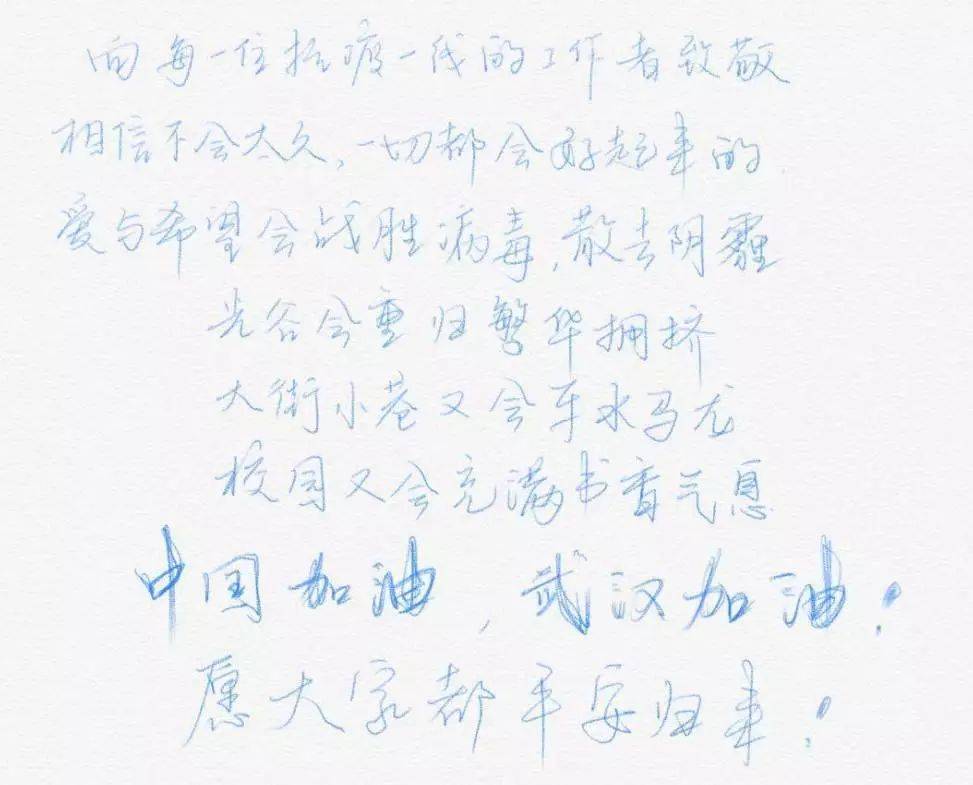 向每一位抗疫一线的工作者致敬
相信不会太久,一切都会好起来的
爱与希望会战胜病毒,散去阴霾
光谷会重归繁华拥挤
大街小巷又会车水马龙
校园又会充满书香气息
中国加油,武汉加油!
愿大家都平安归来!